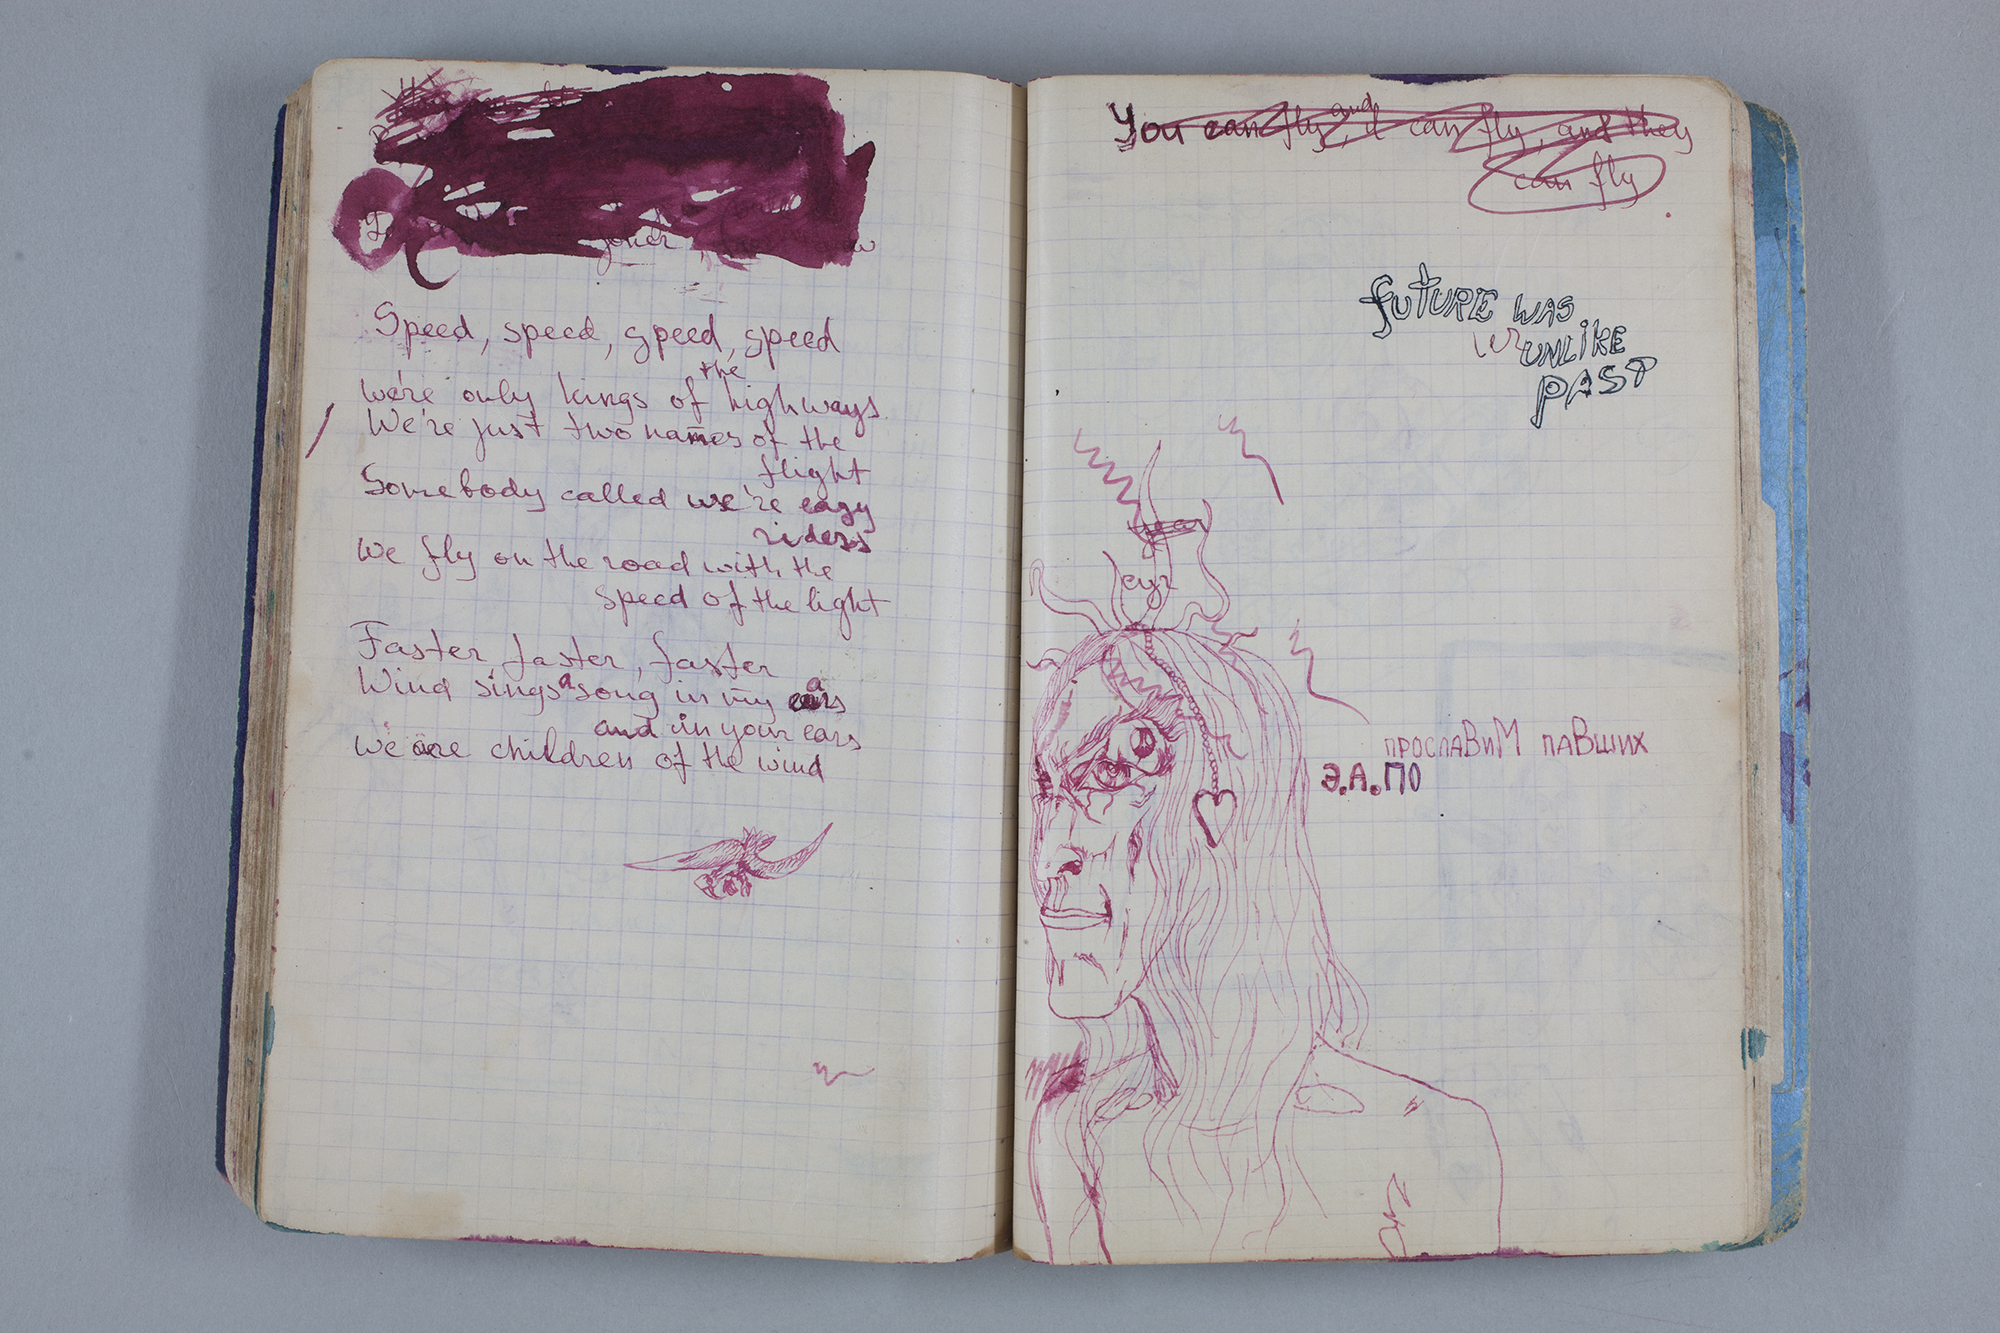 Speed, speed, speed, speed
we're only kings of the highways
We're just two names of the
flight
Somebody called we're easy
riders
we fly on the road with the
speed of the light
Faster, faster, faster
Wind sings a song in my ears
and in your ears
we are children of the wind
You can fly, and I can fly, and they
can fly
FUTURE WAS
UNLIKE
PAST
ПРОСЛАВИМ ПАВШИХ
Э.А.ПО